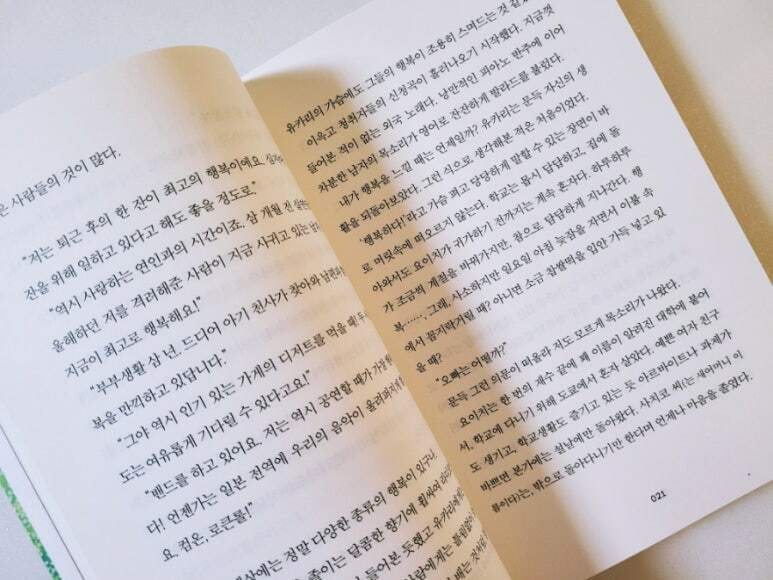 은 사람들의 것이 많다.
"저는 퇴근 후의 한 잔이 최고의 행복이에요.
잔을 위해 일하고 있다고 해도 좋을 정도로."
"역시 사랑하는 연인과의 시간이죠. 삼 개월 전
울해하던 저를 격려해준 사람이 지금 사귀고 있는
지금이 최고로 행복해요!"
"부부생활 삼 년, 드디어 아기 천사가 찾아와
복을 만끽하고 있답니다."
"그야 역시 인기 있는 가게의 디저트를 먹을 때!
도는 여유롭게 기다릴 수 있다고요!"
"밴드를 하고 있어요. 저는 역시 공연할 때가
다! 언젠가는 일본 전역에 우리의 음악이
요. 컴온, 로큰롤!"
에는 정말 다양한 종류의 행복이 있구나.
졸이는 달콤한 향기에 휩싸여
들어본 듯했고 유카리에
유카리의 가슴에도 그들의 행복이 조용히 스며드는 것
이윽고 청취자들의 신청곡이 흘러나오기 시작했다. 지금껏
들어본 적이 없는 외국 노래다. 낭만적인 피아노 반주에 이어
차분한 남자의 목소리가 영어로 잔잔하게 발라드를 불렀다.
내가 행복을 느낄 때는 언제일까? 유카리는 문득 자신의 생
활을 되돌아보았다. 그런 식으로 생각해본 적은 처음이었다.
'행복하다!'라고 가슴 펴고 당당하게 말할 수 있는 장면이 바
로 머릿속에 떠오르지 않는다. 학교는 몹시 답답하고, 집에 돌
아와서도 요이치가 귀가하기 전까지는 계속 혼자다. 하루하루
가 조금씩 계절을 바꿔가지만, 참으로 담담하게 지나간다. 행
복……, 그래, 사소하지만 일요일 아침 늦잠을 자면서 이불 속
에서 꼼지락거릴 때? 아니면 소금 찹쌀떡을 입안 가득 넣고 있
을 때?
"오빠는 어떨까?"
문득 그런 의문이 떠올라 저도 모르게 목소리가 나왔다.
요이치는 한 번의 재수 끝에 꽤 이름이 알려진 대학에 붙어
서, 학교에 다니기 위해 도쿄에서 혼자 살았다. 예쁜 여자 친구
도 생기고, 학교생활도 즐기고 있는 듯 아르바이트나 과제가
바쁘면 본가에는 설날에만 돌아왔다. 사치코 씨(는 새어머니 이
름이다)는, 밖으로 돌아다니기만 한다며 언제나 마음을 졸였다.
021